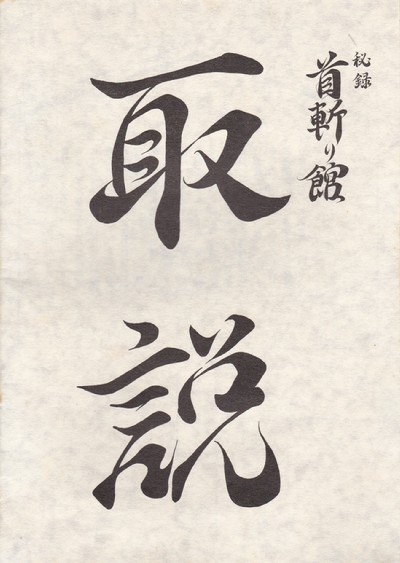 秘録
首斬り館
取説